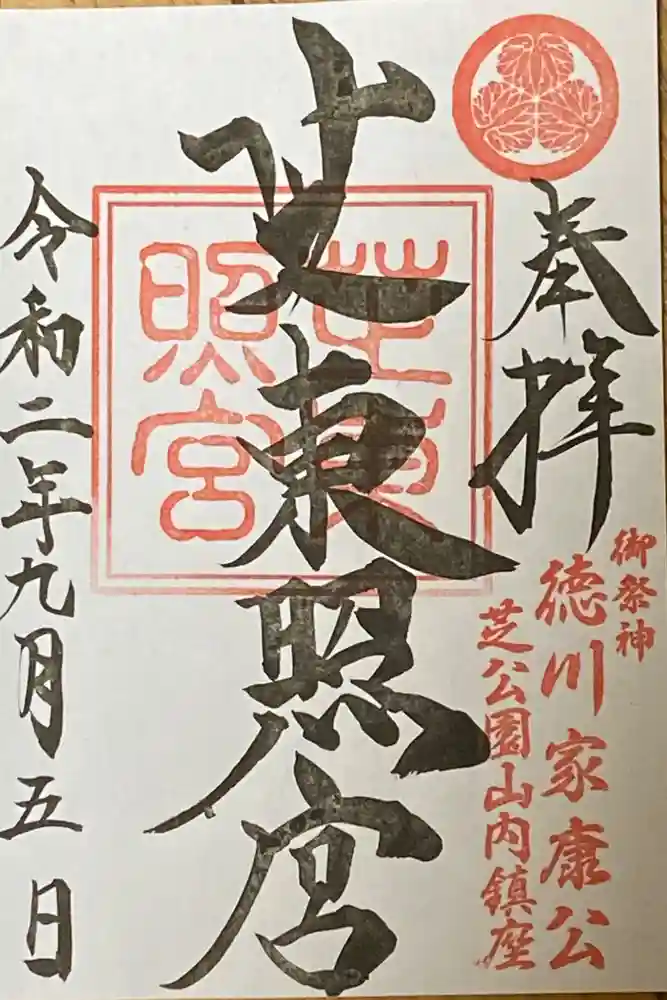 奉拝
御祭神
徳川家康公
芝公園山内鎮座
芝東照宮
芝東
照宮
令和二年九月五日